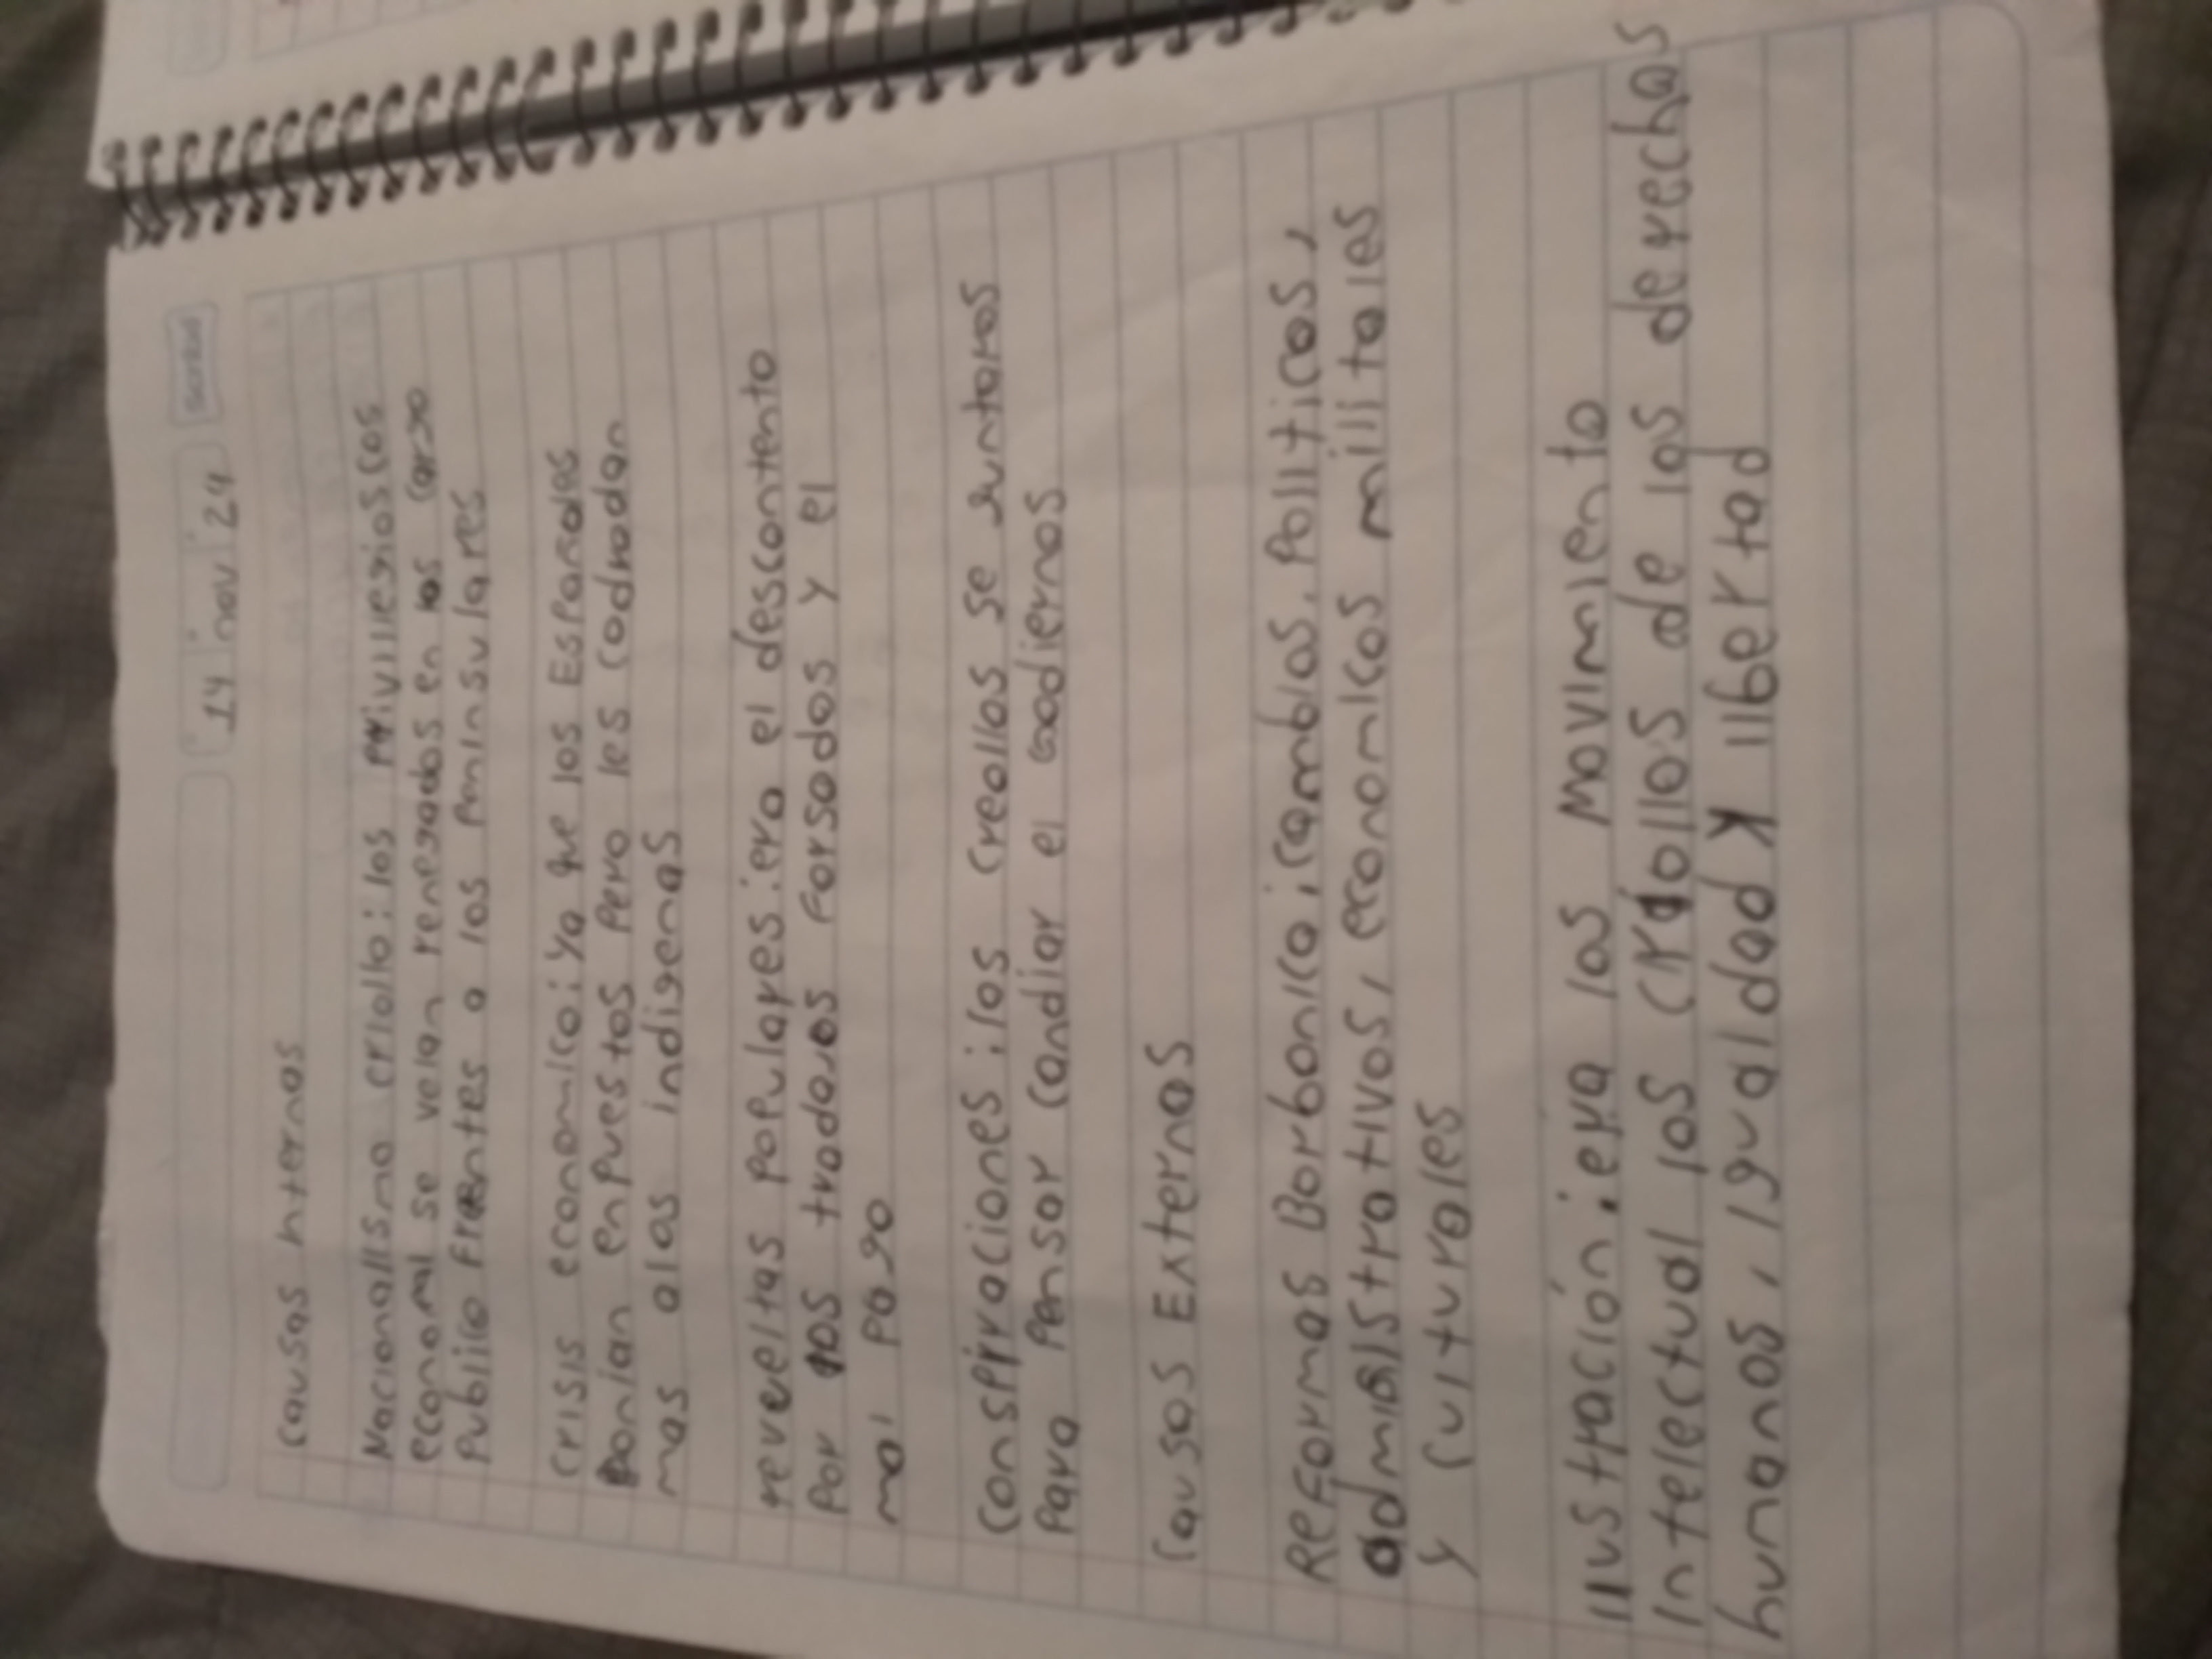 14 nov 24
causas internas
Nacionalismo criollo: los privillegios cos
economl se velan renegados en los cargo
publico frentes a los peninsulares
crisis economico: ya que los Españoles
Ponian enpuestos pero les codradan
mas alas indigenas
revueltas populares: era el descontento
por los tradaJos Forsodos y el
mal pago
conspiraciones: los creollos se juntaros
para Pensar candiar el godiernos
causas Externas
Reformas Borbonica: cambios. Politicos,
admisistrativos, economicos millitales
y culturales
ilustración: era los movimiento
intelectual los criollos de los derechos
humanos, igualdad y libertad